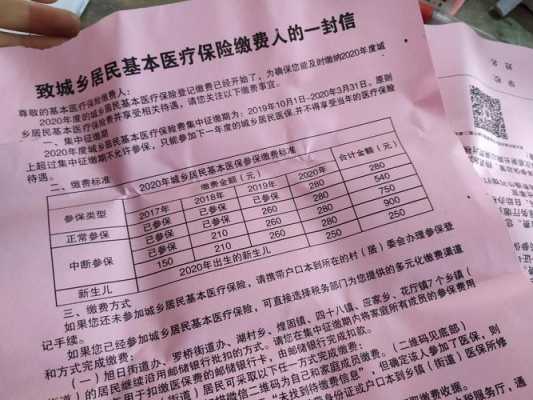 致城乡居民基本医疗保险缴费人的一封信
尊敬的基本医疗保险缴费人：
2020年度的城乡居民基本医疗保险登记缴费已经开始了，为确保您能及时缴纳2020年度城
乡居民基本医疗保险费并享受相关待遇，请您关注以下缴费事宜。
一、集中征缴期
2020年度城乡居民基本医疗保险费集中征缴期为：2019年10月1日-2020年3月31日。原则
上超过集中征缴期不允许参保，只能参加下一年度的城乡居民医保，并不得享受当年的医疗保险
待遇。
二、缴费标准
2020年城乡居民基本医保参保缴费标准
参保类型 缴费金额（元） 合计金额（元）
2017年 2018年 2019年 2020年
正常参保 已参保 已参保 已参保 280 280
中断参保 已参保 已参保 260 280 540
已参保 210 260 280 750
150 210 260 280 900
新生儿 2020年出生的新生儿 250 250
三、缴费方式
如果您还未参加城乡居民基本医疗保险，请携带户口本到所在的村（居）委会办理参保登
记手续。
如果您已经参加城乡居民基本医疗保险，可直接选择税务部门为您提供的多元化缴费渠道
和方式完成缴费：
（一）旭日街道办、罗桥街道办、湖村乡、煌固镇、四十八镇、应家乡、花厅镇7个乡镇（
街道）的居民继续沿用邮储银行批扣的方式。请您在集中征缴期内将家庭所有成员的参保费用
用于扣缴医保费的邮储银行卡，由邮储银行完成扣款。
居民可采取以下任一方式完成缴费：
微信二维码为自己和家庭成员缴费。（二维码见底部）
“未找到待缴费信息”，但确定该人参加了医保，则
身份证或户口本到乡镇（街道）医保所修
收取缴费收据。